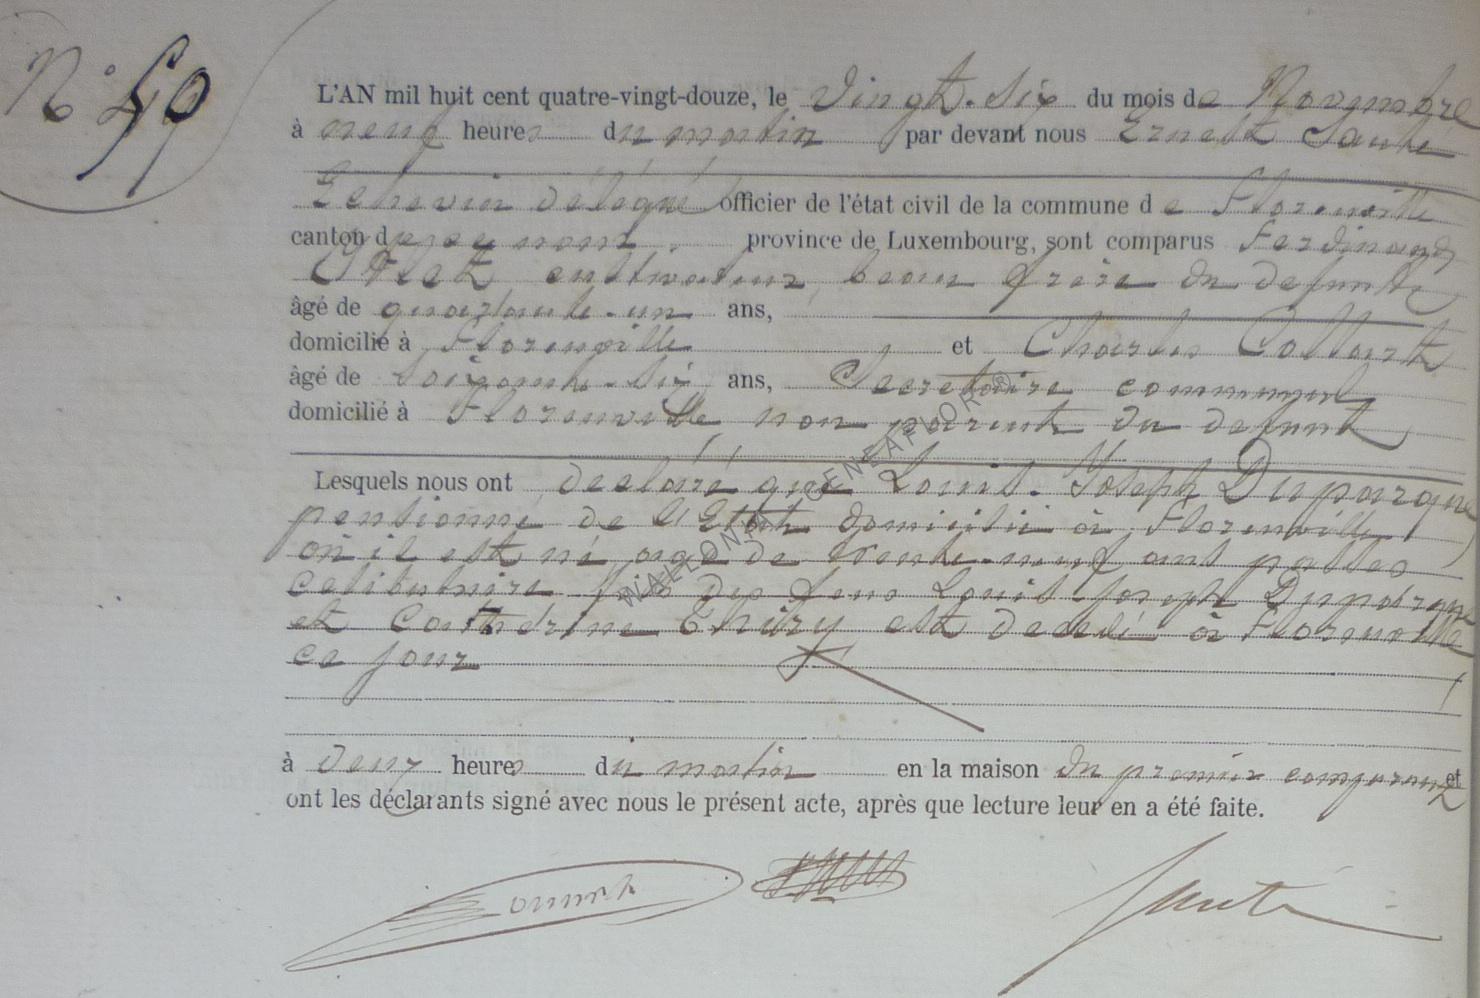 N° 49
L'AN mil huit cent quatre-vingt-douze, le Vingt-Six du mois de Novembre
à neuf heures du matin par devant nous Ernest Santé
Echevin délégué officier de l'état civil de la commune de Florenville
canton d province de Luxembourg, sont comparus Ferdinand
cultivateur, beau frère du defunt
âgé de quarante-un ans,
domicilié à Florenville et Charles Collart
âgé de Soixante-Six ans, Secretaire communal
domicilié à Florenville non parent du defunt
Lesquels nous ont declaré que Louis-Joseph Duparque
pensionné de l'Etat domicilié à Florenville
où il est né agé de trente-neuf ans passés
celibataire fils des feus Louis Joseph Duparque
et Catherine Thiry est decedé à Florenville
ce jour
à deux heures du matin en la maison du premier comparant et
ont les déclarants signé avec nous le présent acte, après que lecture leur en a été faite.
Santé
WALLONIA GENEAFLOR ©